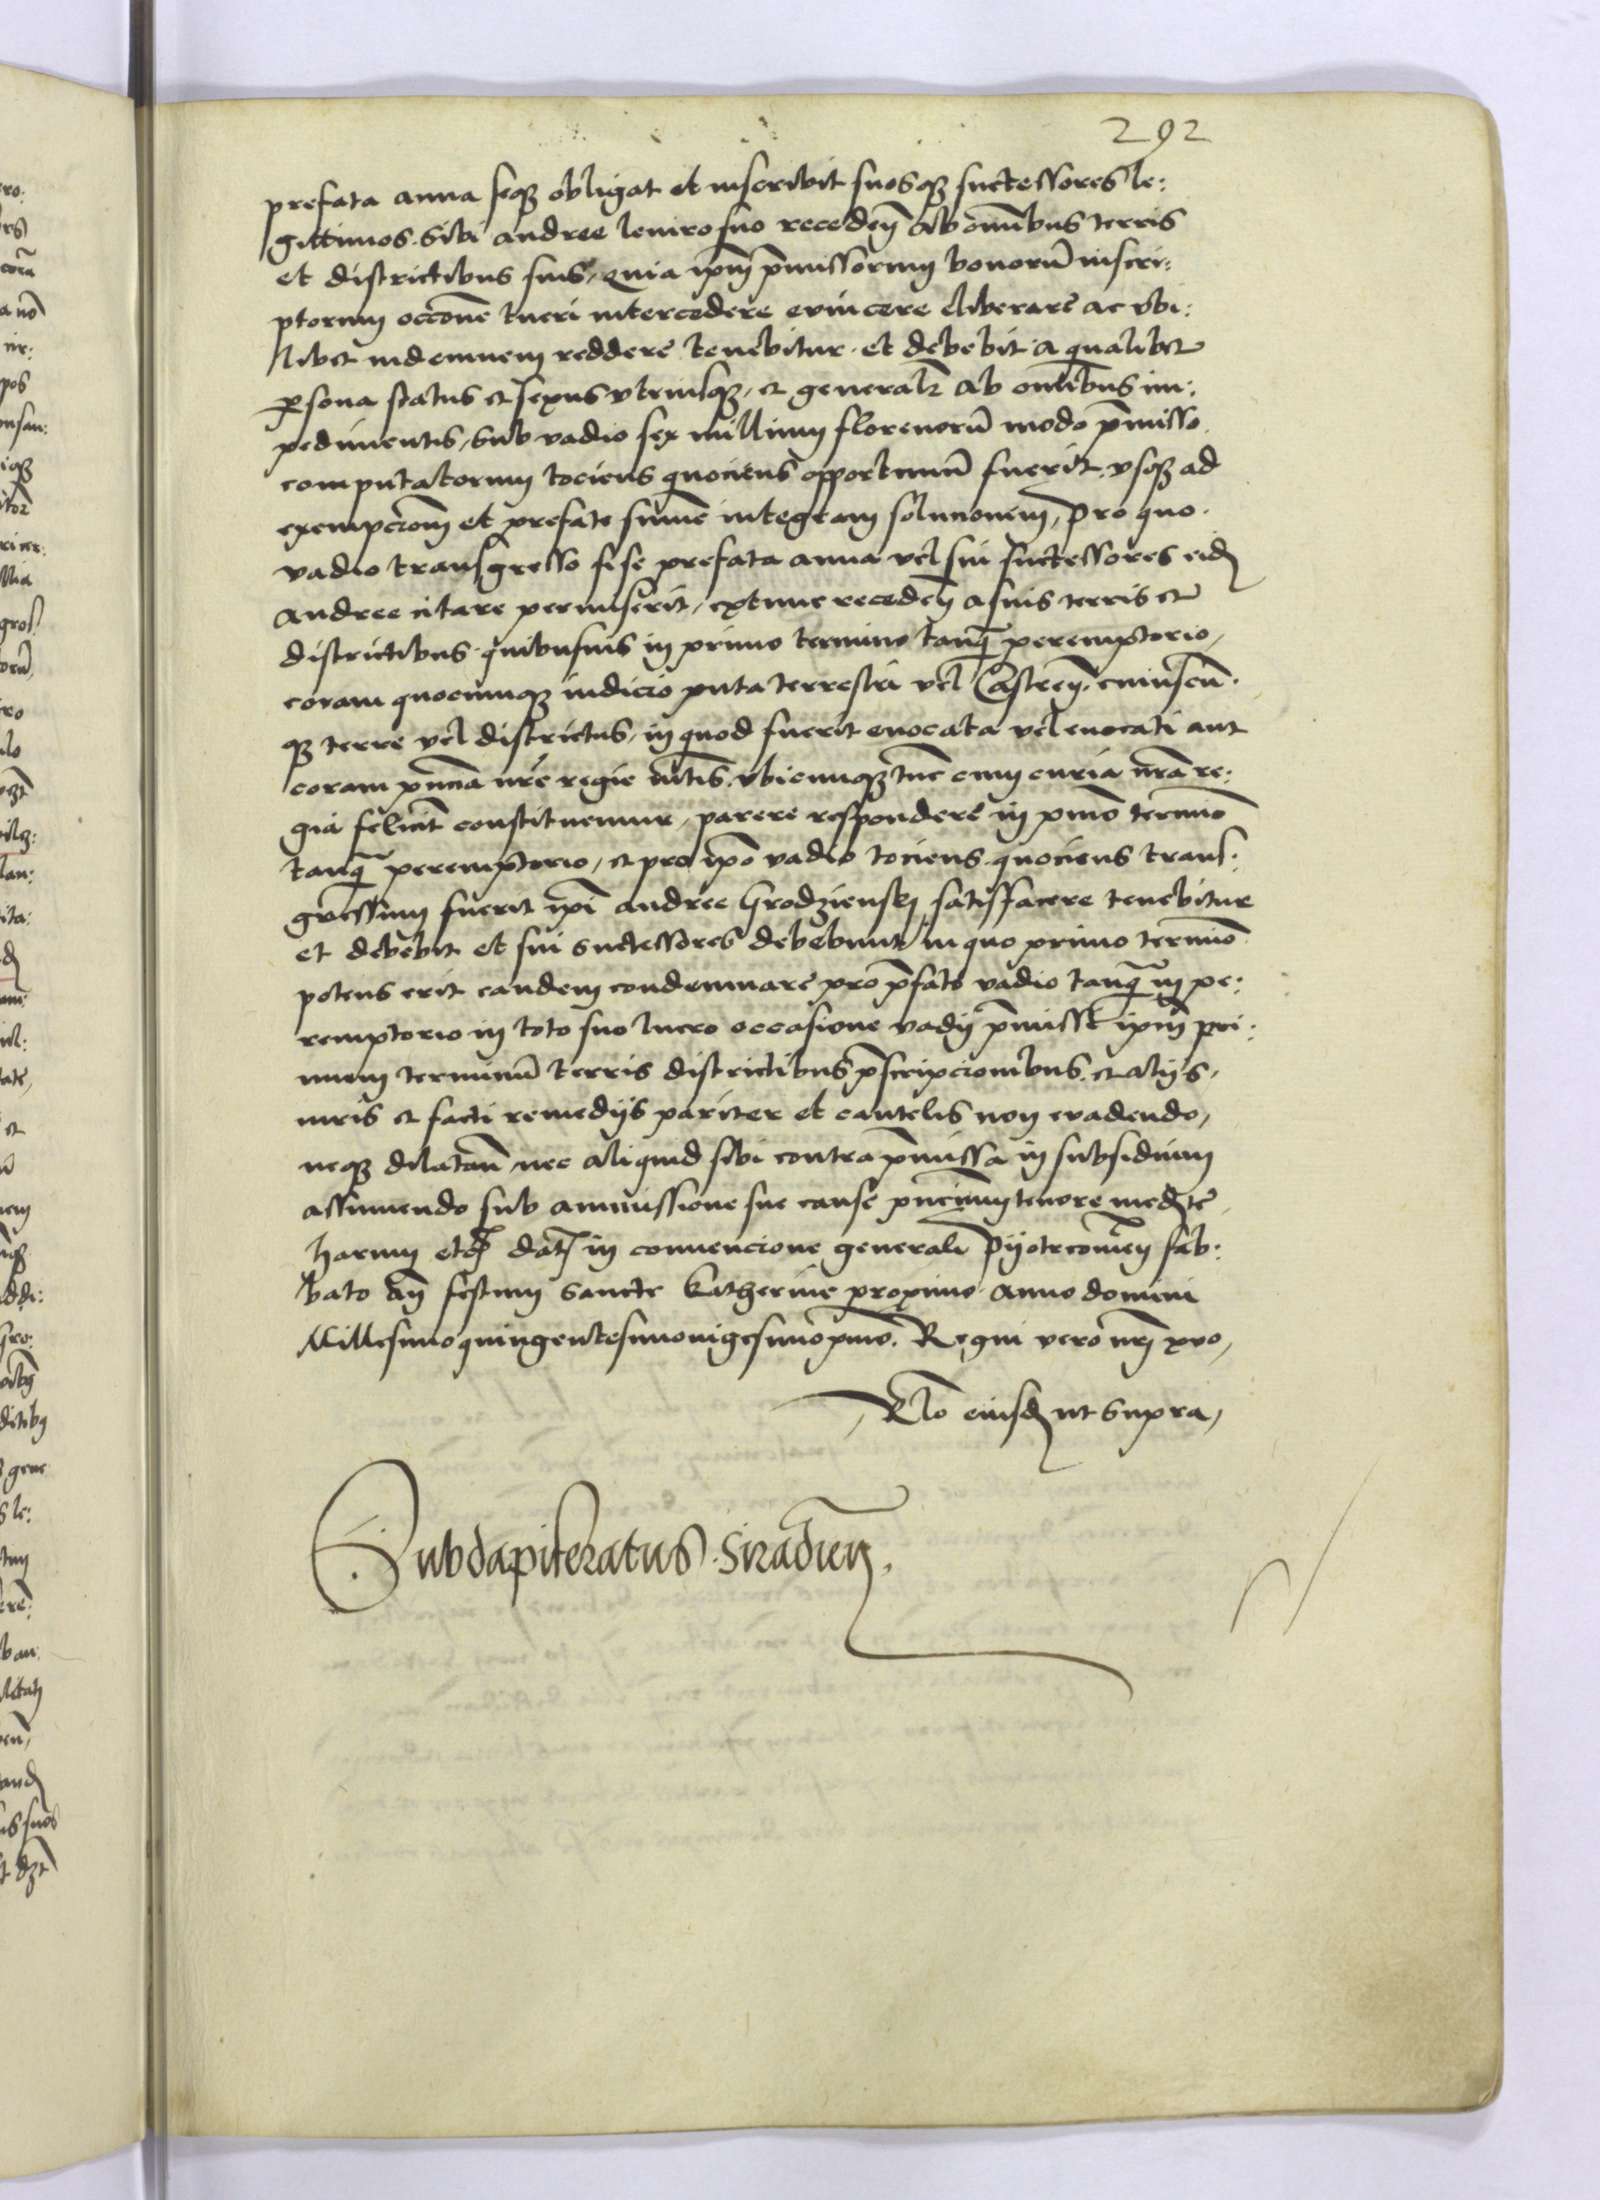 292
prefata anna seqz obligat et inscribit suosqz successores le:
gittimos. Sibi andree leviro suo recedeñ ab omnibus terris
et districtibus suis, quia ip̃m p̃missorum bonorũ inscri:
ptorum occone tueri intercedere evincere liberare ac ubi:
libet indemnem reddere tenebitur et debebit a qualibet
persona status et sexus utriusqz, et generalr ab omibus im:
pedimentis, Sub vadio sex millium florenorũ modo p̃misso
computatorum tociens quociens opportunũ fuerit, usqz ad
exempcionem et prefate sume integram solucionem, Pro quo
vadio transgresso sese prefata anna vel sui successores eid
andree citare permiserit, extunc recedeñ a suis terris et
districtibus quibusvis in primo termino tanq̃ peremptorio,
coram quocumqz iudicio puta terrestri vel Castreñ. cuiuscũ
qz terre vel districtus, in quod fuerit evocata vel evocati aut
coram pñcia nr̃e regie mtis. ubicumqz tunc cum curia nr̃a re:
gia felicit constituemur, parere respondere in pmo termino
tanq̃ peremptorio, et pro ip̃o vadio tociens quociens trans:
gressum fuerit ip̃i andree Grodzienski satisfacere tenebitur
et debebit et sui successores debebunt in quo primo termino
potens erit eandem condemnare pro p̃fato vadio tanq̃ in pe:
remptorio in toto suo lucro occasione vadij p̃missi ip̃m pri:
mum terminũ terris districtibus p̃scripcionibus et alijs,
iuris et facti remedijs pariter et cautelis non evadendo,
neqz dilatañ nec aliquid sibi contra p̃missa in subsidium
assumendo sub ammissione sue cause pñcium tenore medte
harum etc dat in convencione generali Pyotrcovieñ sab:
bato añ festum Sancte Katherine proximo anno domini
Millesimo quingentesimo vigesimo pmo. Regni vero nrj xvo,
Rlo eiusd ut supra,
Subdapiferatus Siradieñ.